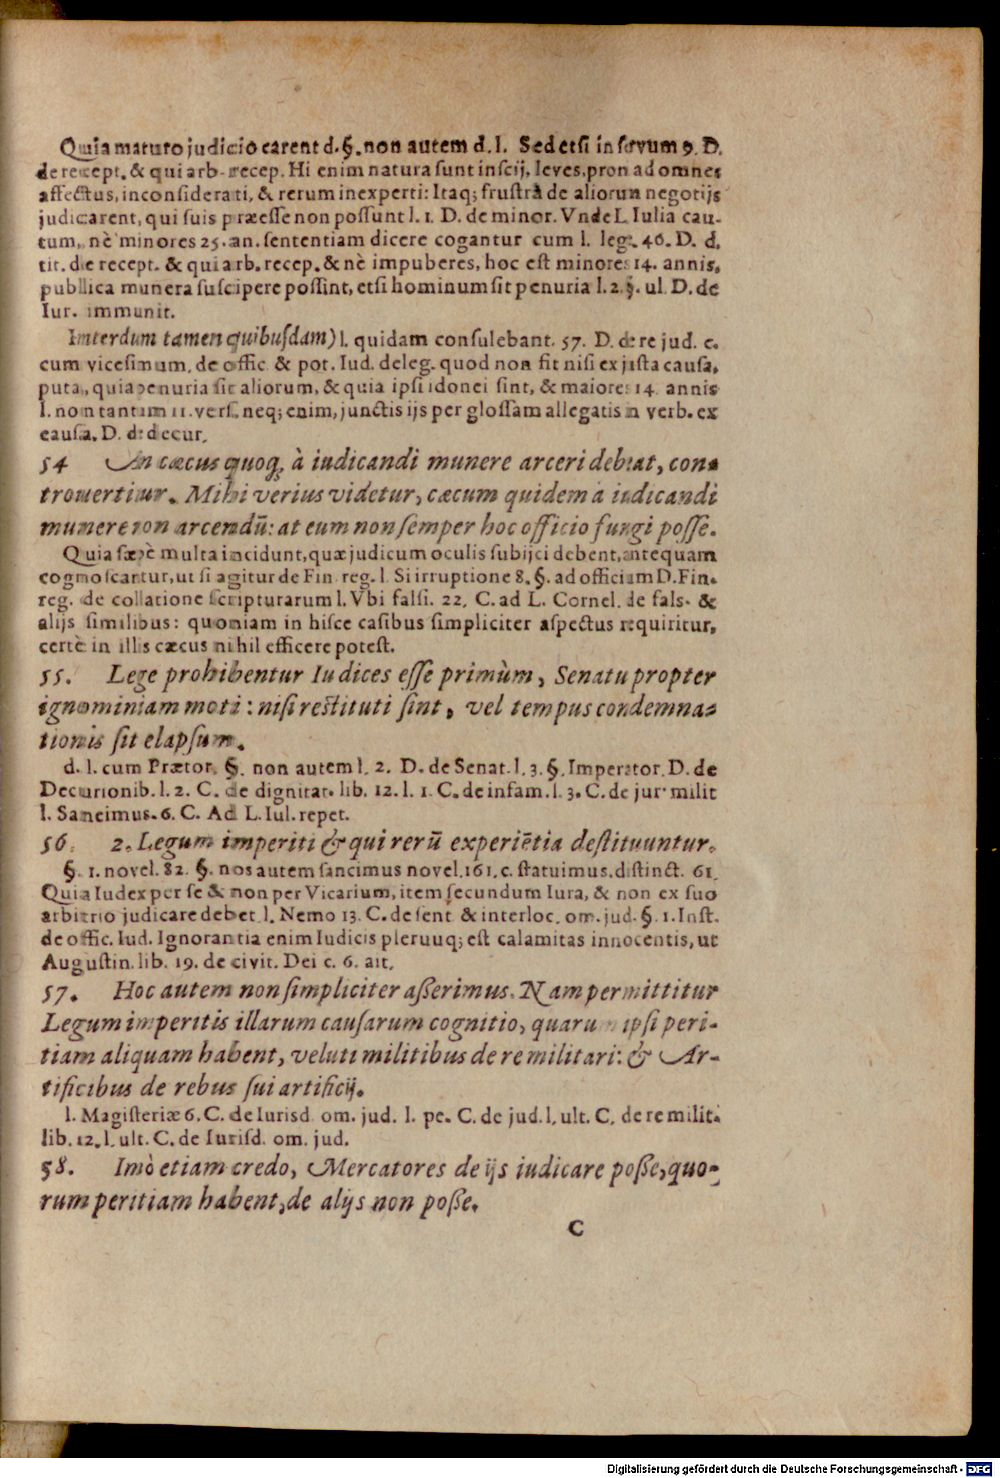 Quia maturo judicio carent d. §. non autem d. l. Sed etsi in servum 9. D.
de recept. & qui arb. recep. Hi enim natura sunt inscij, leves, pron ad omnes
affectus, inconsiderati, & rerum inexperti: Itaq; frustrà de aliorum negotijs
judicarent, qui suis præesse non possunt l. 1. D. de minor. Vnde L. Iulia cau-
tum, nè minores 25. an. sententiam dicere cogantur cum l. leg. 46. D. d.
tit. de recept. & qui arb. recep. & nè impuberes, hoc est minores 14. annis,
publica munera suscipere possint, etsi hominum sit penuria l. 2. §. ul. D. de
Iur. immunit.
Interdum tamen quibusdam) l. quidam consulebant. 57. D. de re jud. c.
cum vicesimum, de offic. & pot. Iud. deleg. quod non fit nisi ex justa causa,
puta, quia penuria sit aliorum, & quia ipsi idonei sint, & maiores 14. annis
l. non tantum 11. vers. neq; enim, junctis ijs per glossam allegatis in verb. ex
causa. D. de decur.
54 An cæcus quoq; à iudicandi munere arceri debeat, con-
trouertitur. Mihi verius videtur, cæcum quidem à iudicandi
munere non arcendū: at eum non semper hoc officio fungi posse.
Quia sæpè multa incidunt, quæ judicum oculis subijci debent, antequam
cognoscantur, ut si agitur de Fin. reg. l. Si irruptione 8. §. ad officium D. Fin.
reg. de collatione scripturarum l. Vbi falsi. 22. C. ad L. Cornel. de fals. &
alijs similibus: quoniam in hisce casibus simpliciter aspectus requiritur,
certè in illis cæcus nihil efficere potest.
55. Lege prohibentur Iudices esse primùm, Senatu propter
ignominiam moti: nisi restituti sint, vel tempus condemna-
tionis sit elapsum.
d. l. cum Prætor. §. non autem l. 2. D. de Senat. l. 3. §. Imperator. D. de
Decurionib. l. 2. C. de dignitat. lib. 12. l. 1. C. de infam. l. 3. C. de jur. milit
l. Sancimus. 6. C. Ad L. Iul. repet.
56. 2. Legum imperiti & qui rerū experiētia destituuntur.
§. 1. novel. 82. §. nos autem sancimus novel. 161. c. statuimus. distinct. 61.
Quia Iudex per se & non per Vicarium, item secundum Iura, & non ex suo
arbitrio judicare debet l. Nemo 13. C. de sent & interloc. om. jud. §. 1. Inst.
de offic. Iud. Ignorantia enim Iudicis pleruuq; est calamitas innocentis, ut
Augustin. lib. 19. de civit. Dei c. 6. ait.
57. Hoc autem non simpliciter asserimus. Nam permittitur
Legum imperitis illarum causarum cognitio, quarum ipsi peri-
tiam aliquam habent, veluti militibus de re militari: & Ar-
tificibus de rebus sui artificij.
l. Magisteriæ 6. C. de Iurisd. om. jud. l. pe. C. de jud. l. ult. C. de re milit.
lib. 12. l. ult. C. de Iurisd. om. jud.
58. Imò etiam credo, Mercatores de ijs iudicare posse, quo-
rum peritiam habent, de alijs non posse.
C
Digitalisierung gefördert durch die Deutsche Forschungsgemeinschaft - DFG